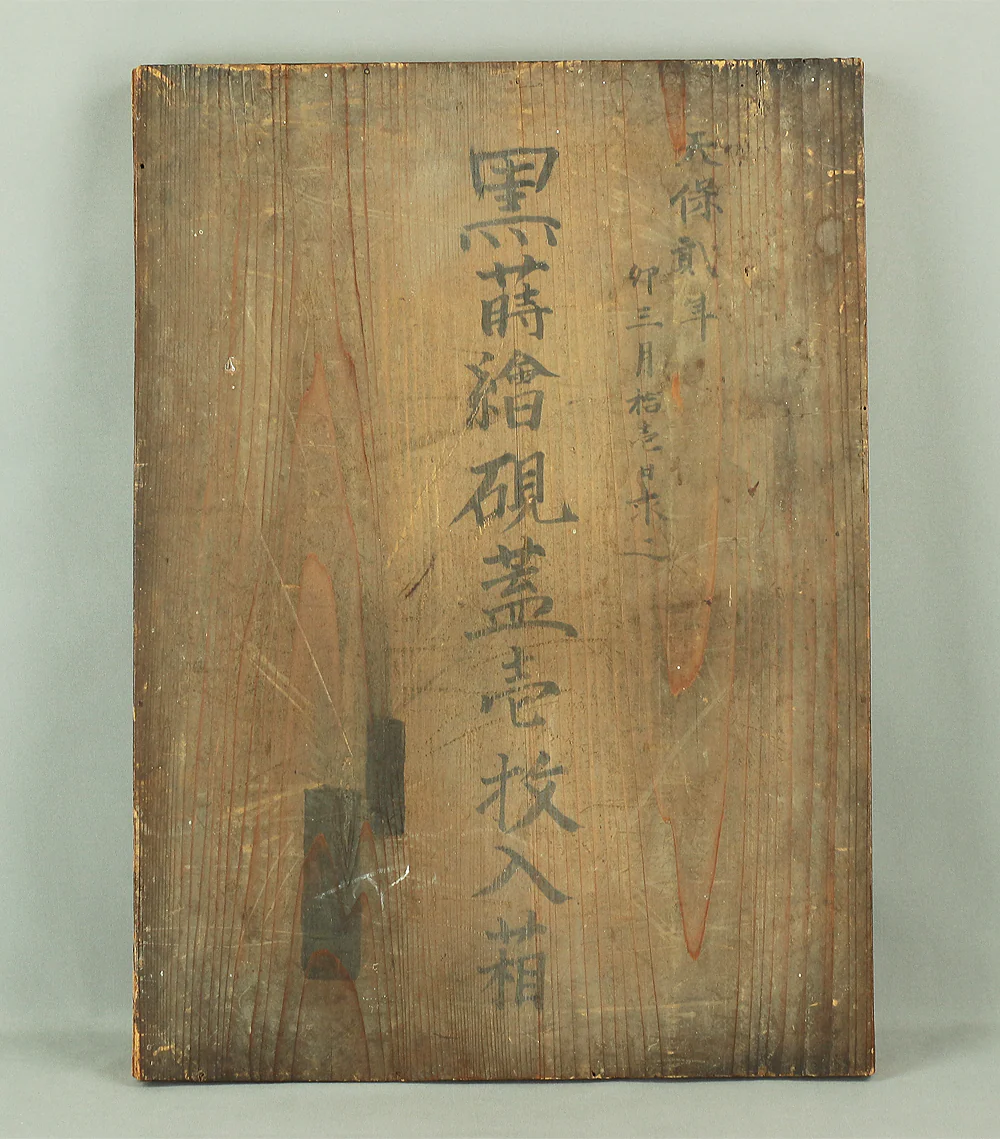 天保貳年
卯三月拾壱日求之
黒蒔繪硯蓋壱枚入葙